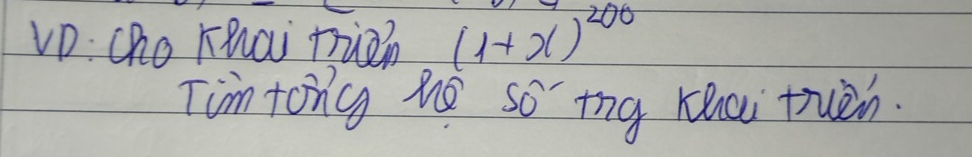 VD: cho khai triển (1+x)^200
Tìm tổng hệ số trg khai triển.